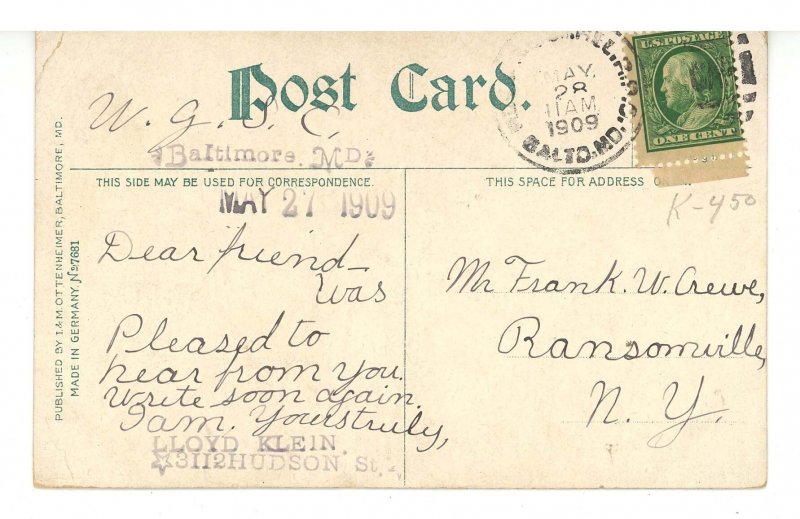 Post Card.
MAY.
28
11AM
1909
BALTO. MD.
U.S. POSTAGE
ONE CENT
W. G. S. C.
Baltimore, MD
THIS SIDE MAY BE USED FOR CORRESPONDENCE.
THIS SPACE FOR ADDRESS
MAY 27 1909
K-450
Dear friend—
was
Pleased to
hear from you.
Write soon again.
I am. Yours truly,
LLOYD KLEIN.
☆3112 HUDSON St.
Mr Frank. W. Crewe,
Ransomville,
N. Y.
PUBLISHED BY I. & M. OTTENHEIMER, BALTIMORE, MD.
MADE IN GERMANY. No 7681